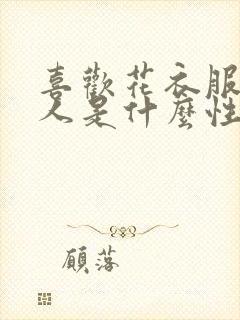 喜歡花衣服
人是什麼性
顧落